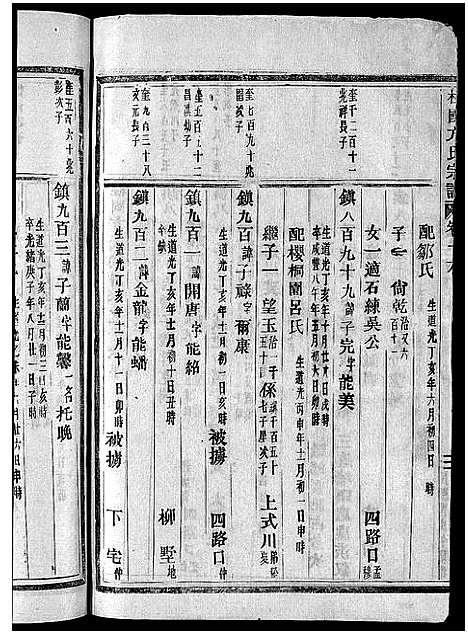 方氏宗譜
配鄒氏
生道光丁亥年六月初四日 時
子一 尙乾
女一適石練吳公
奎千二百十一
兆祥長子
鎮八百九十九 諱子完 字能美
四路口
生道光丁亥年十月廿六日戌時
卒咸豐八年午年五月十五日辰時
配櫻桐圍呂氏
生道光丙申年十一月初一日亥時
繼子一 望玉 係 七子 次子
上式川
奎七百九十兆
鎮九百 諱子祿 字爾康
生道光丁亥年十一月初一日亥時
被擄
四路口 仲
奎五百九十二
昌淇幼子
鎮九百一 諱開唐 字能紹
生道光丁亥年十一月初十日丑時
柳墅 地
奎九百三十八
汝元長子
鎮九百二 諱金龍 字能蟠
生道光丁亥年十二月十一日卯時
被擄
下宅 仲
奎五百六十兆
彭次子
鎮九百三 諱子蘭 字能馨 一名托晚
生道光丁亥年十二月初十日亥時
卒光緒庚子年八月廿一日子時